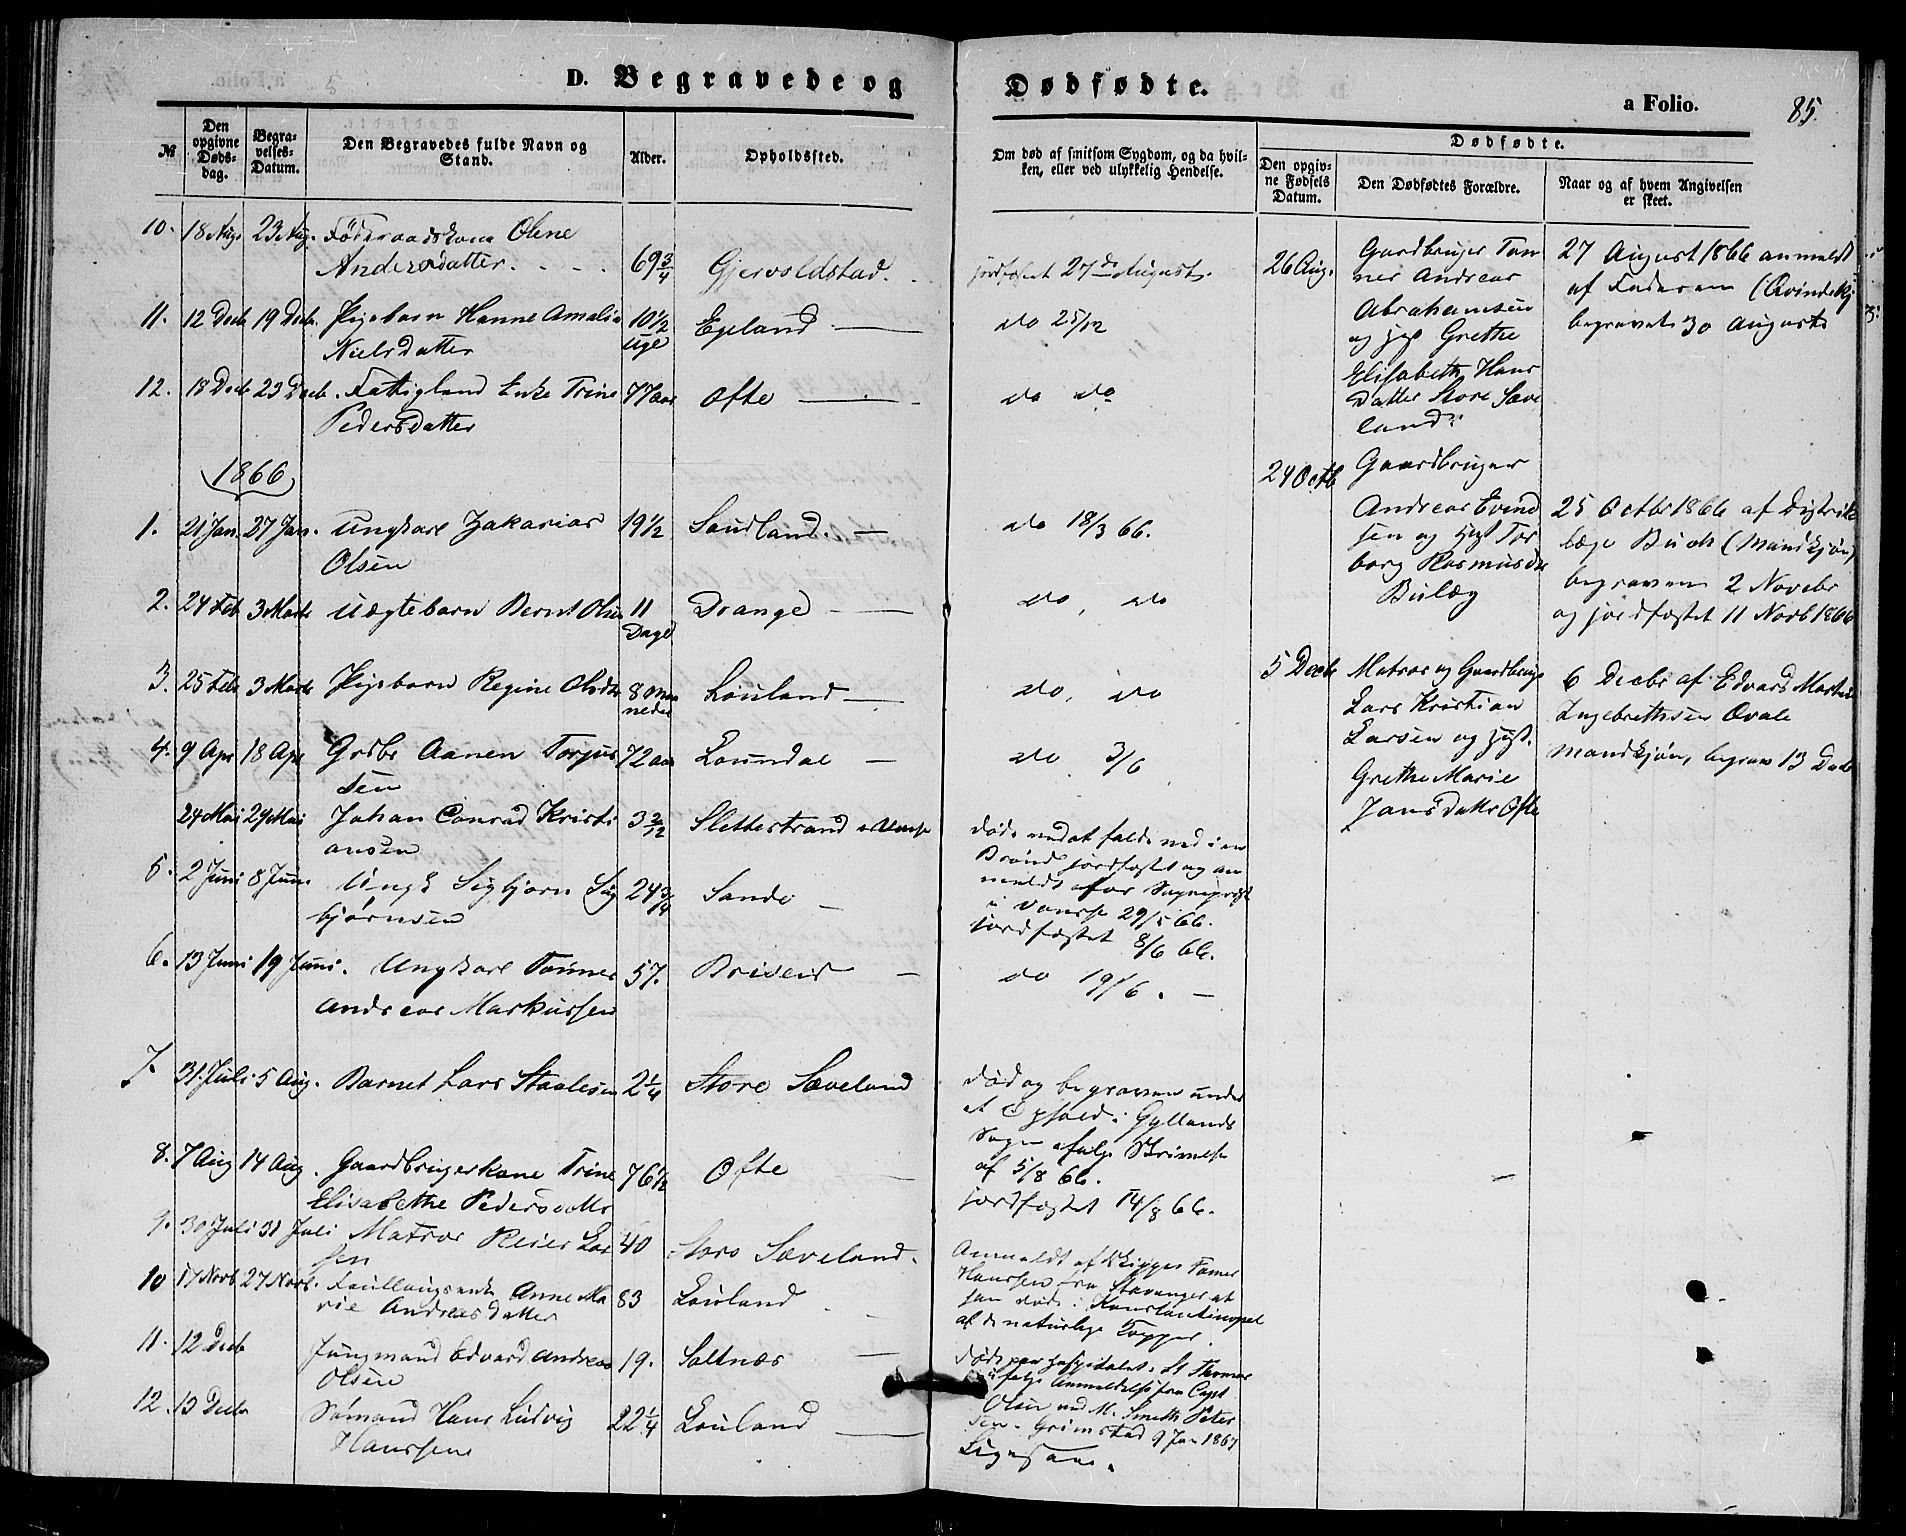 D. Begravede og Dødfødte.
a Folio. 85.
№
Den opgivne Døds-dag.
Begra-velses-Datum.
Den Begravedes fulde Navn og Stand.
Alder.
Opholdssted.
Om død af smitsom Sygdom, og da hvil-ken, eller ved ulykkelig Hendelse.
Dødfødte.
Den opgiv-ne Fødsels Datum.
Den Dødfødtes Forældre.
Naar og af hvem Angivelsen er skeet.
10. 18 Aug 23 Aug. Föderaadskone Olene
Andersdatter. 69 3/4 Gjervoldstad. jordfæstet 27de August.
11. 12 Decb 19 Decb. Pigebarn Hanne Amalia 10 1/2 Uge Egeland do 25/12
Nielsdatter
12. 18 Decb 23 Decb. Fattiglem Enke Trine 77 aar Ofte do do
Pedersdatter
1866
1. 21 Jan 27 Jan. Ungkarl Zakarias 19 1/2 Sandland. do 18/3 66.
Olsen
2. 24 Feb 3 Marts Uægtebarn Bernt Olsen 11 Dage Drange do, do
3. 25 Feb 3 Marts Pigebarn Regine Olsdtr 8 Maaneder Louland do, do
4. 9 Apr 18 Apr Grdbr Aanen Torjus 72 aar Loundal do 3/6
sen
24 Mai 29 Mai Johan Conrad Kristi 3 2/12 Slettestrand
ansen
Døde ved at falde ned i en
Brönd jordfæstet og an
meldt af Sognepræst
i Vanse 29/5 66.
5. 2 Juni 8 Juni Ungk Sigbjørn Sig 24 3/4 Sande
bjørnsen
jordfæstet 8/6 66.
6. 13 Juni 19 Juni. Ungkarl Tønnes 57. Briseid do 19/6.
Andreas Markussen
7. 31 Juli 5 Aug. Barnet Lars Staalesen 2 1/4 Store Sæveland
Død og begraven under
et Ophold i Gyllands
Sogn ifølge Skrivelse
af 5/8 66.
8. 7 Aug 14 Aug. Gaardbrugerkone Trine 76 1/2 Ofte
Elisabethe Pedersdatter
jordfæstet 14/8 66.
9. 30 Juli 31 Juli Matros Reier Lar 40 Store Sæveland.
sen
Anmeldt af Skipper Tønnes
Hanssen fra Stavanger at
han døde i Konstantinopel
af de naturlige Kopper.
10 17 Novb 27 Novb. Anne Ma 83 Louland
rie Andreasdatter
11. 12 Decb Jungmand Edvard Andreas 19. Saltnæs
Olsen
Døde paa Hospitalet i St Thomas
ifølge Anmeldelse fra Capt
Olsen ved M. Smith Peter
sen. Grimstad 9 Jan 1867
12. 13 Decb Sømand Hans Ludvig 22 1/4 Louland
Hanssen
Ligesaa.
26 Aug.
Gaardbruger Tøn
nes Andreas
Abrahamsen
og hst Grethe
Elisabeth Hans
datter Store Sæve
land.
27 August 1866 anmeldt
af Faderen (Qvindekj
begravet 30 August
24 Octb
Gaardbruger
Andreas Evend
sen og hst Tor
borg Rasmusdtr
Bulæg
25 Octbr 1866 af Distrikts
læge Buch (Mandkjøn)
begraven 2 Novbr
og jordfæstet 11 Novb 1866
5 Decb
Matros og Gaardbruger
Lars Kristian
Larsen og hst.
Grethe Marie
Jansdatter Ofte
6 Decbr af Edvard Martin
Ingebrethsen Ovale
Mandkjøn, begrav 13 Decb